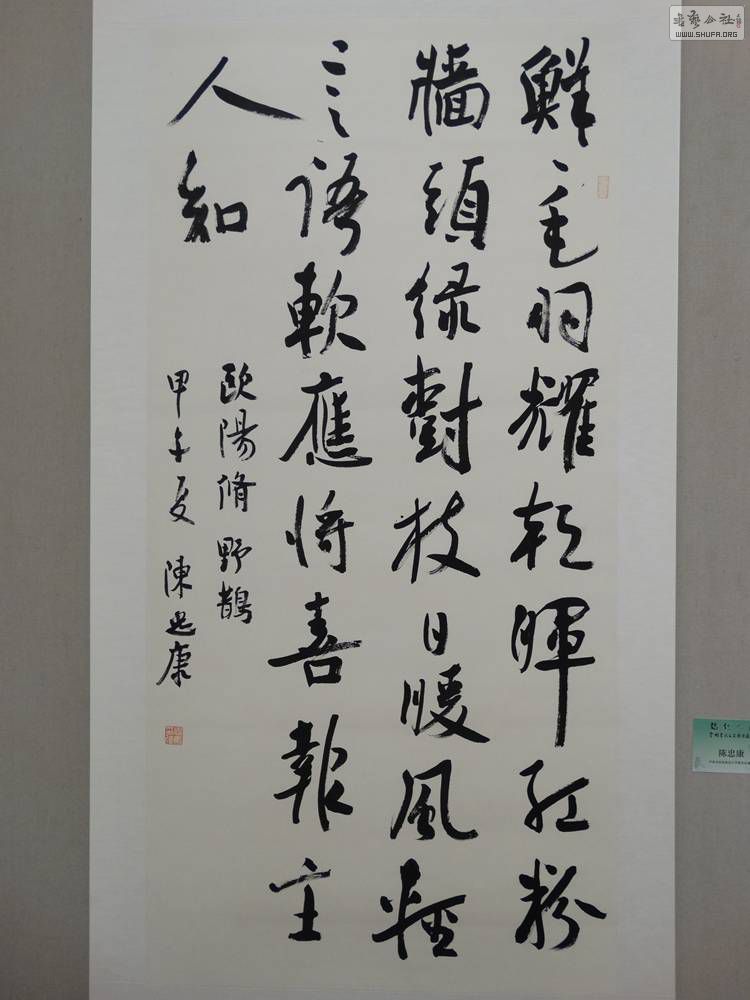 鮮〻毛羽耀朝暉紅粉
牆頭緑樹枝日暖風輕
言語軟應將喜報主
人知
歐陽脩野鵲
甲午夏 陳忠康
陈忠康
WWW.SHUFA.ORG